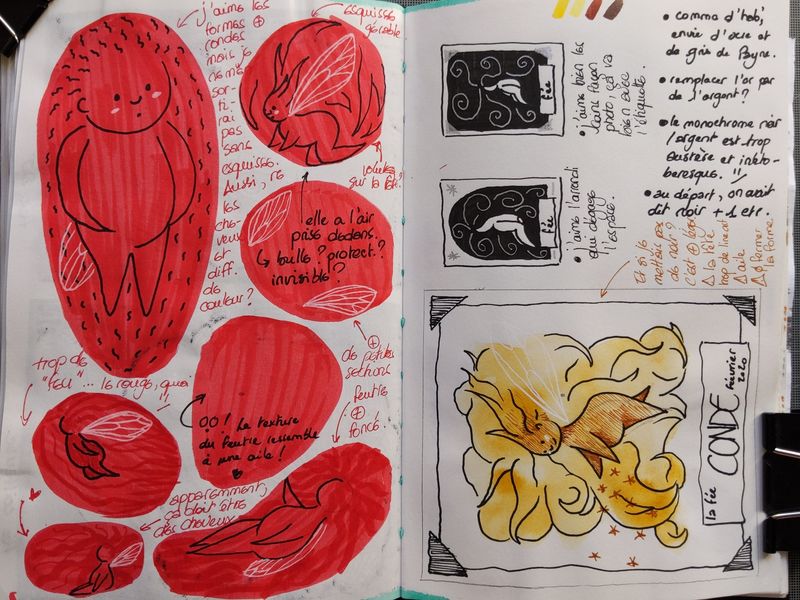 j'aime les
formes ⊕
rondes
mais je
ne m'e
sor-
ti-
rai
pas
sans
esquisse.
Aussi,
les
che-
veux
et
diff.
de
couleur?
esquisse
volutes
sur la tête?
elle a l'air
prise dedans.
↳ bulle? protect.?
invisible?
⊕
de petites
sections
feutre
⊕
foncé.
trop de
"feu"... le rouge, quoi
!!
OO! La texture
du feutre ressemble
à une aile!
apparemment,
ça doit être
des cheveux
• j'aime bien les
coins façon
photo, ça va
bien avec
l'étiquette.
Fée
• j'aime l'arrondi
qui dégage
l'espace.
Fée
• comme d'hab',
envie d'ocre et
de gris de Payne.
• remplacer l'or par
de l'argent?
• le monochrome noir
/argent est trop
austère et
!!
• au départ, on avait
dit noir + 1 clr.
Et si je
mettais pas
de noir?
la fée
CONDE
Février
2020